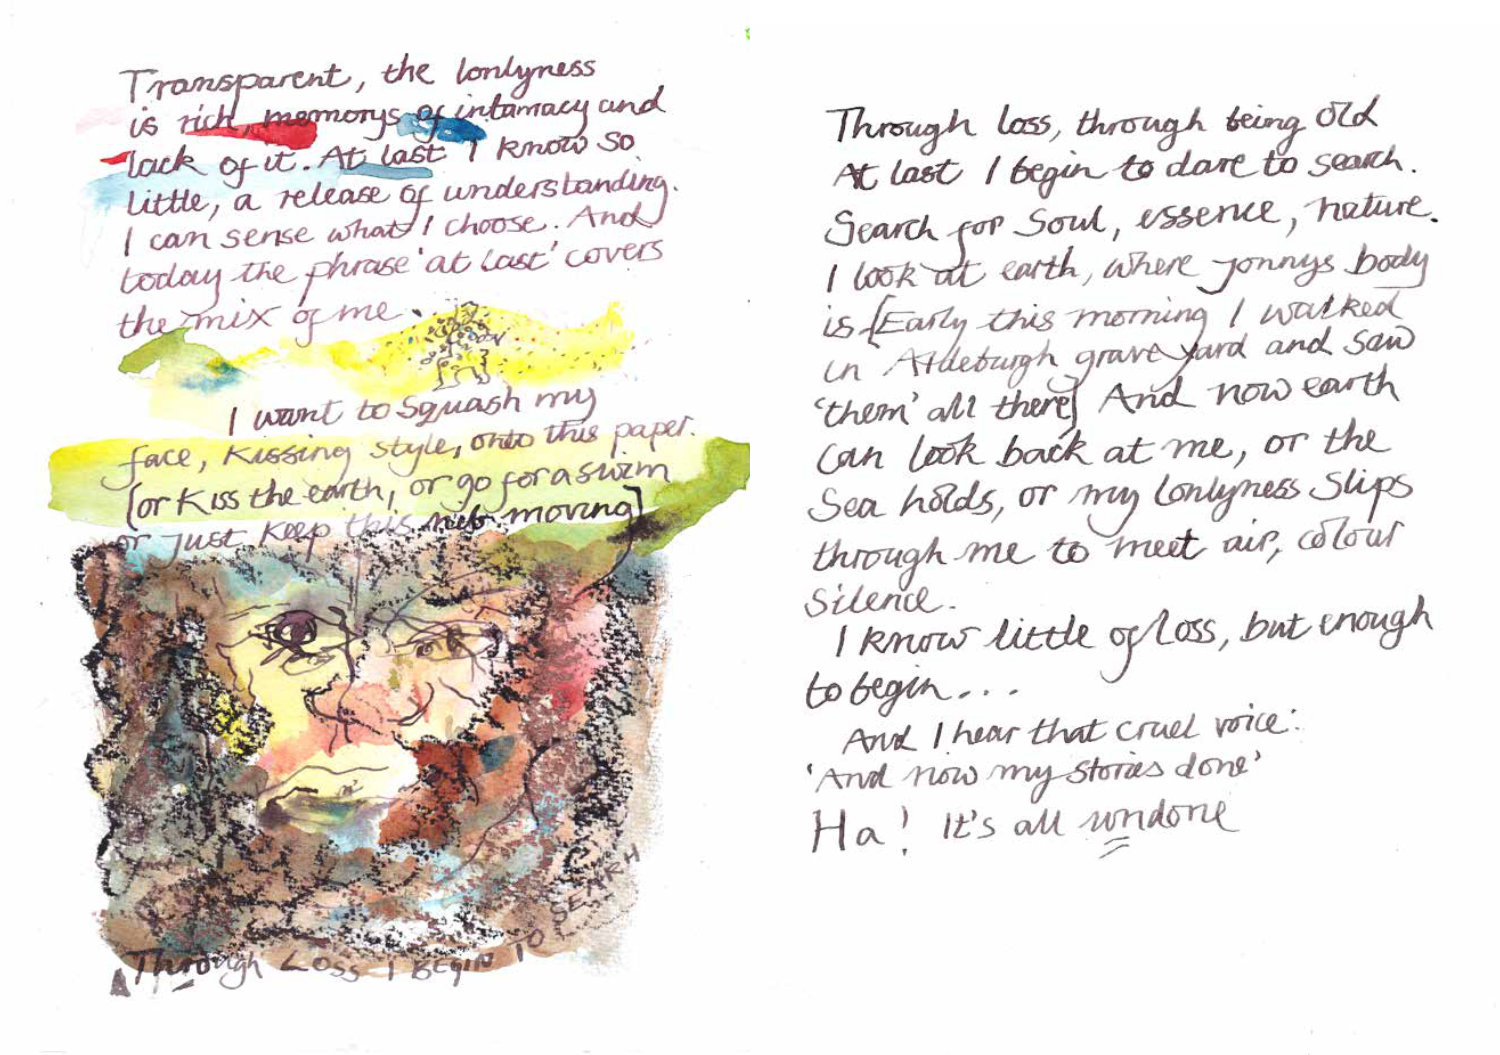 Transparent, the lonlyness
is rich, memorys of intamacy and
lack of it. At last I know so
little, a release of understanding.
I can sense what I choose. And
today the phrase 'at last' covers
the mix of me.
I want to squash my
face, kissing style, onto this paper.
[or kiss the earth, or go for a swim
or just keep this nib moving]
Through Loss I BEGIN TO SEARH
Through loss, through being old
At last I begin to dare to search.
Search for Soul, essence, nature.
I look at earth, where Jonnys body
is [Early this morning I walked
in Aldeburgh grave yard and saw
'them' all there] And now earth
can look back at me, or the
Sea holds, or my lonlyness slips
through me to meet air, colour
silence.
I know little of loss, but enough
to begin...
And I hear that cruel voice:
'And now my stories done'
Ha! It's all undone